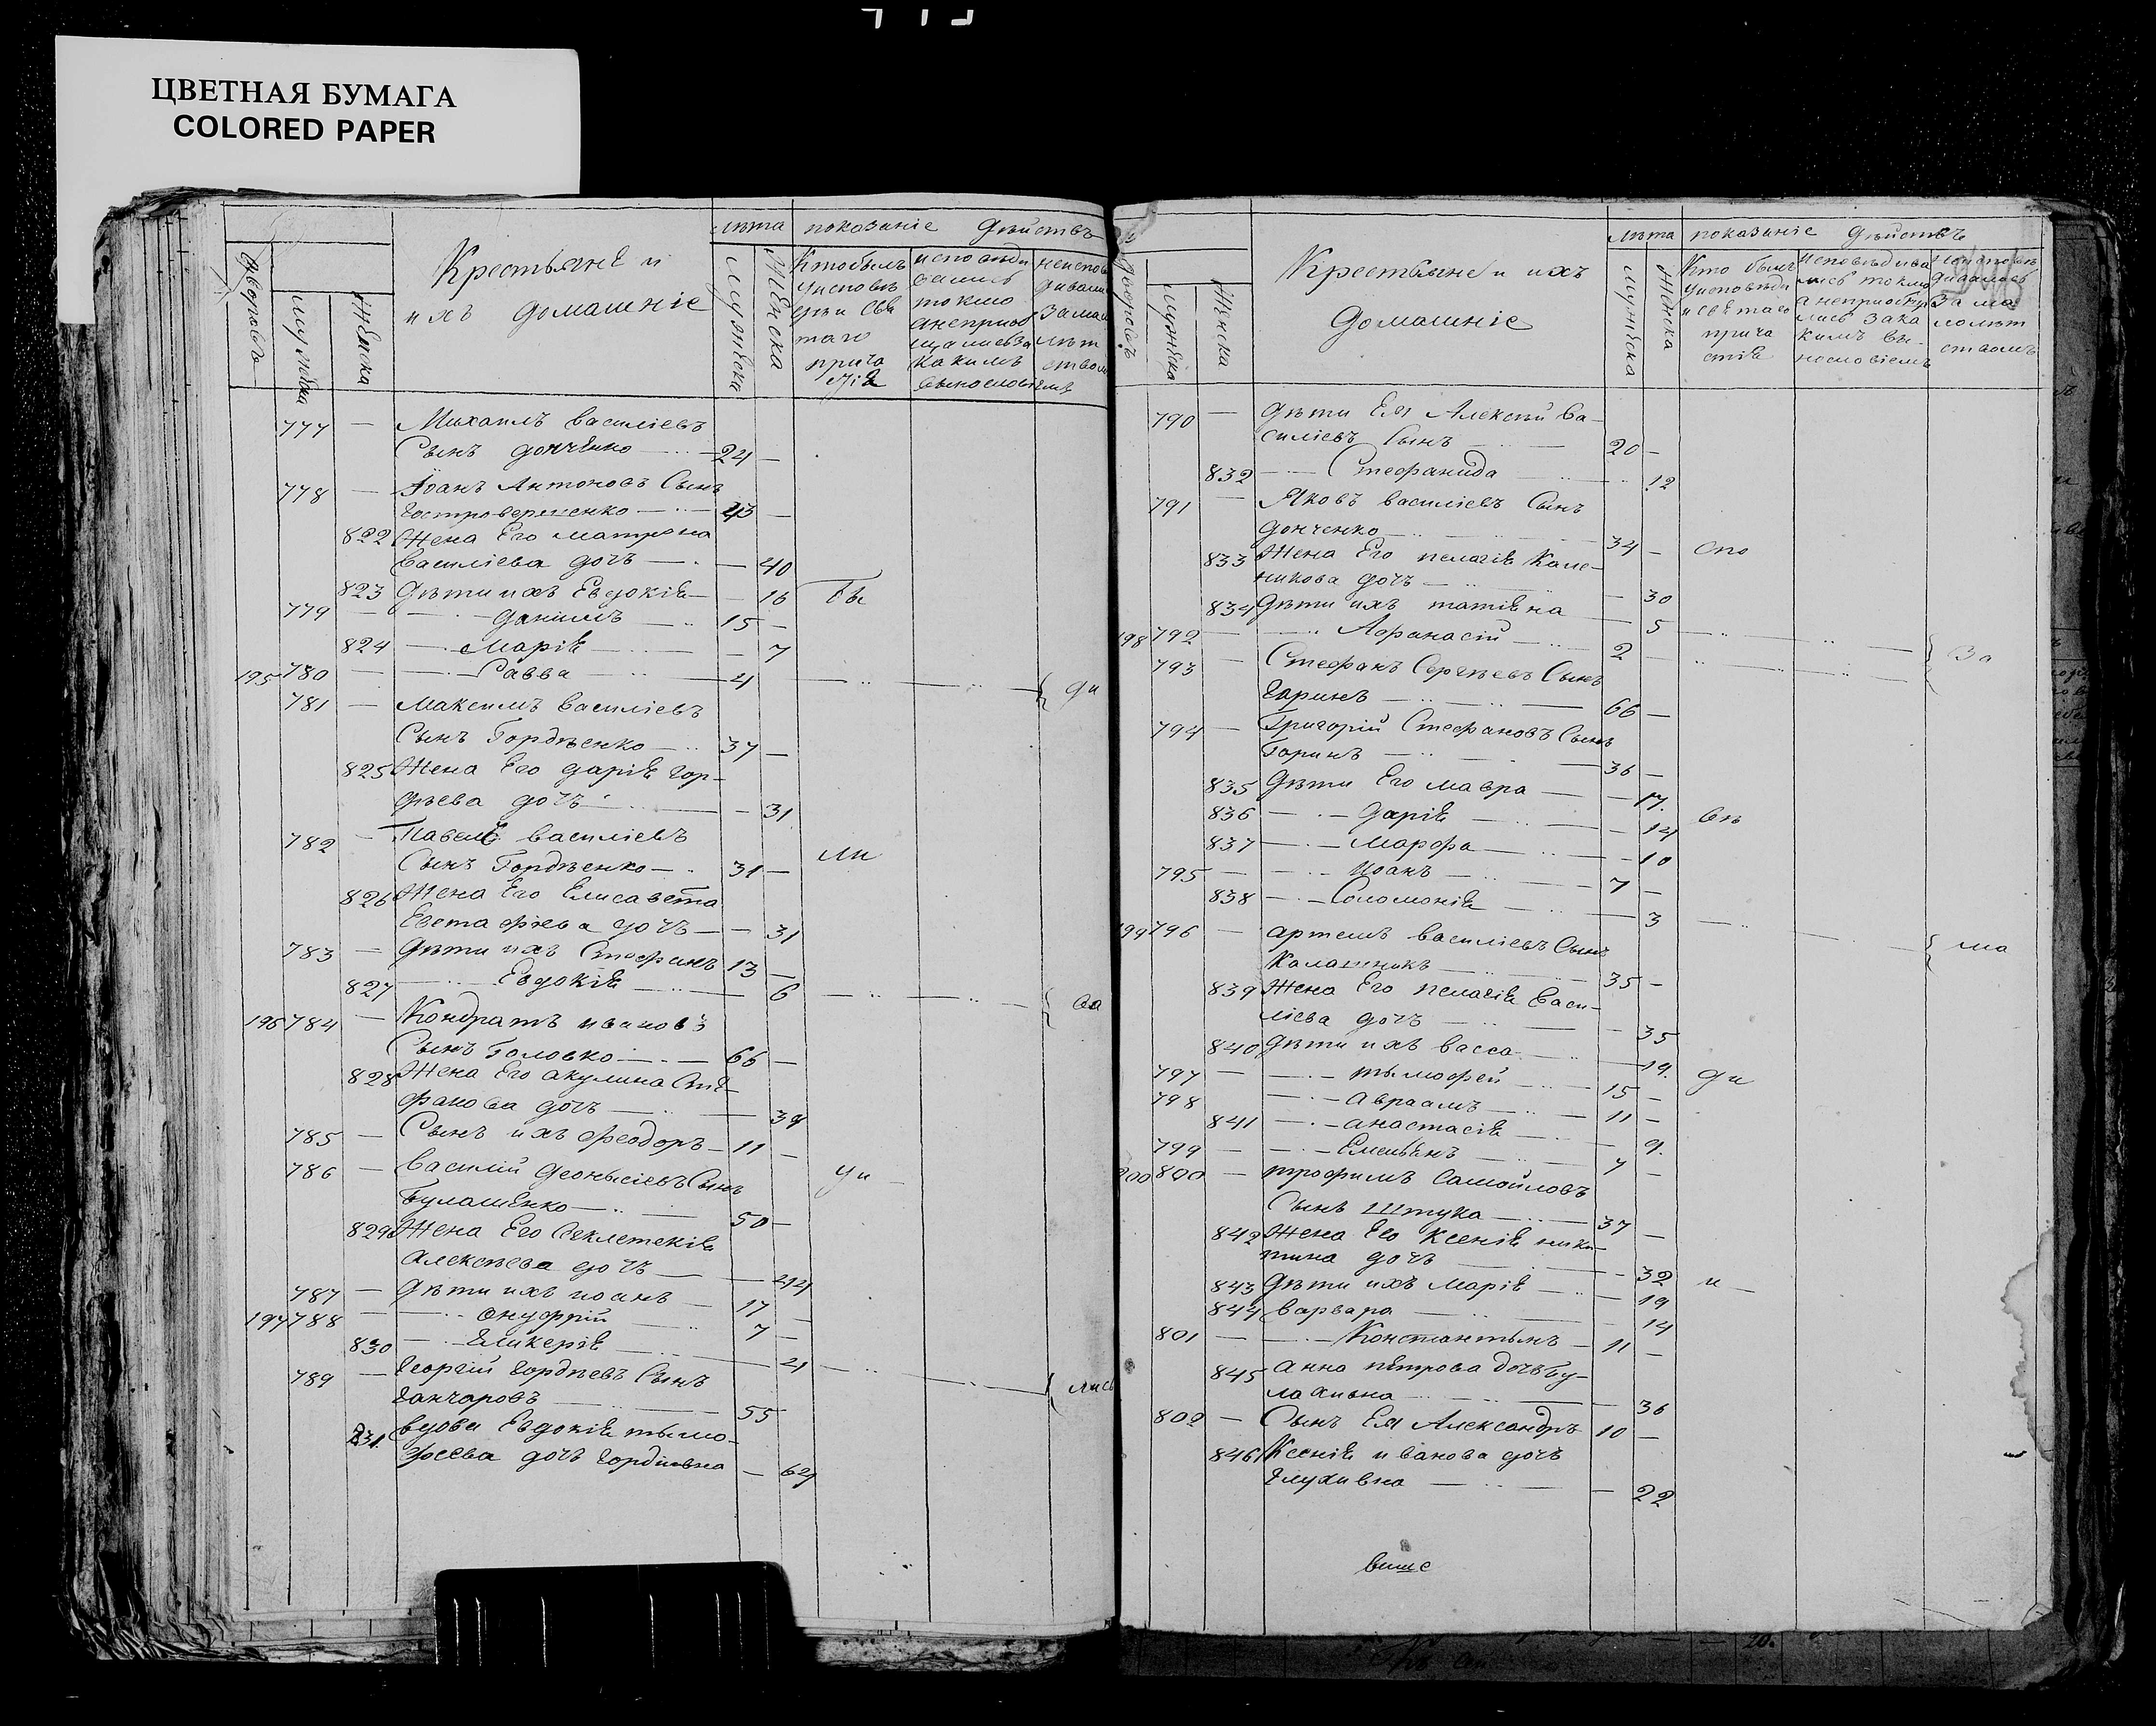 ЦВЕТНАЯ БУМАГА
COLORED PAPER
лѣта показаніе дѣйствъ
дворовъ
мужеска
женска
Крестьяне и
ихъ домашніе
мужеска
женска
Кто былъ
у исповѣ
ди и свя
таго
прича
стія
исповѣди
вались
токмо
а непріоб
щались за
какимъ
винословіемъ
неиспов
довали
за мал
лѣт
ством
777 — Михаилъ василіевъ
Сынъ донченко — 24 —
778 — Іоанъ Антоновъ Сынъ
43 —
822 Жена Его матрона
василіева дочъ — 40
823 Дѣти ихъ Евдокія — 16 бы
779 — даниилъ — 15 —
824 — Марія — 7
195 780 — Савва — 4 — ди
781 — Максимъ василіевъ
Сынъ Гордѣенко — 37 —
825 Жена Его дарія гор-
дѣева дочъ — 31
782 — Павелъ василіевъ
Сынъ Гордѣенко — 31 — ли
826 Жена Его Елисавета
Евстафіева дочъ — 31
783 — Дѣти ихъ Стефанъ 13 —
827 — Евдокія — 6 — ва
196 784 — Кондратъ ивановъ
Сынъ Головко — 66 —
828 Жена Его акулина Сте
фанова дочъ — 39
785 — Сынъ ихъ феодоръ — 11 —
786 — василій деонысіевъ Сынъ уи —
Булашенко — 50 —
829 Жена Его Секлетекія
алексѣева дочъ — 44
787 — дѣти ихъ иоанъ — 17 —
197 788 — онуфрій — 7 —
830 — Гликерія — 4
789 — Георгій гордѣевъ Сынъ лись
ганчаровъ — 55
831. вдова Евдокія тымо-
фѣева дочъ гордіивна — 64
лѣта показаніе дѣйствъ
дворовъ
мужеска
женска
Крестьяне и ихъ
домашніе
мужеска
женска
Кто былъ
у исповѣди
и святаго
прича
стія
исповѣдива
лись токмо
а непріобщ
лись за ка
кимъ ви-
нословіемъ
неисповѣ
дивались
за ма
лолѣт
ствомъ
790 — дѣти Ея Алексѣй ва-
силіевъ Сынъ — 20 —
832 — Стефанида — 12
791 — Яковъ василіевъ Сынъ
донченко — 34 — спо
833 Жена Его пелагія Кале-
никова дочъ — 30
834 дѣти ихъ татіяна — 5
198 792 — Афанасій — 2 — за
793 — Стефанъ Сергѣевъ Сынъ
Горинъ — 66 —
794 — Григорій Стефановъ Сынъ
Горинъ — 36 —
835 дѣти Его мавра — 17.
836 — дарія — 14 вѣ
837 — Марфа — 10
795 — Иоанъ — 7 —
838 — Соломонія — 3
199 796 — артемъ василіевъ Сынъ ма
Калашникъ — 35 —
839 Жена Его пелагія васи-
ліева дочъ — 35
840 дѣти ихъ васса — 19. ди
797 — тымофей — 15 —
798 — авраамъ — 11 —
841 — анастасія — 9.
799 — Емельянъ — 7 —
200 800 — трофимъ Самойловъ
Сынъ Штука — 37 —
842 Жена Его Ксенія ники-
тина дочъ — 32 и —
843 дѣти ихъ марія — 19
844 варвара — 14
801 — Константынъ — 11 —
845 анна петрова дочъ бу-
лахивна — 36
802 — Сынъ Ея Александръ 10 —
846 Ксенія иванова дочъ
глухивна — 22
више